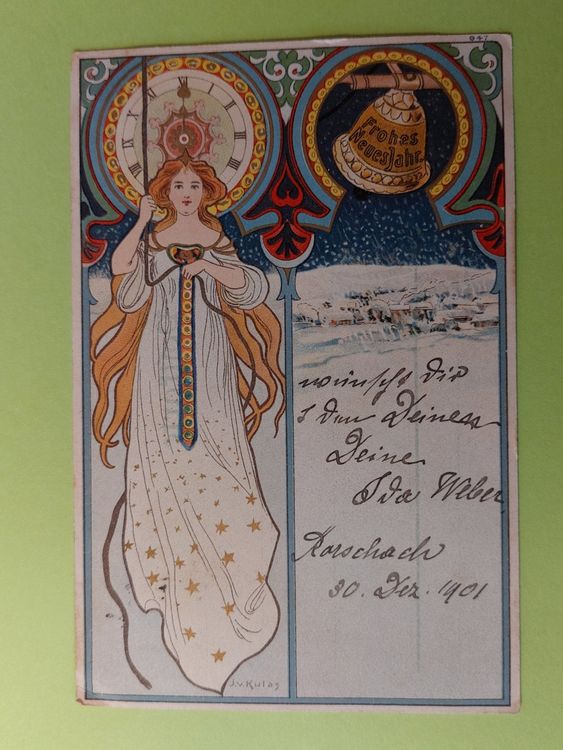 947
XII
Frohes
Neues Jahr.
wünscht dir
& den Deinen
Deine
Ida Weber
Rorschach
30. Dez. 1901
J.v.Kulas